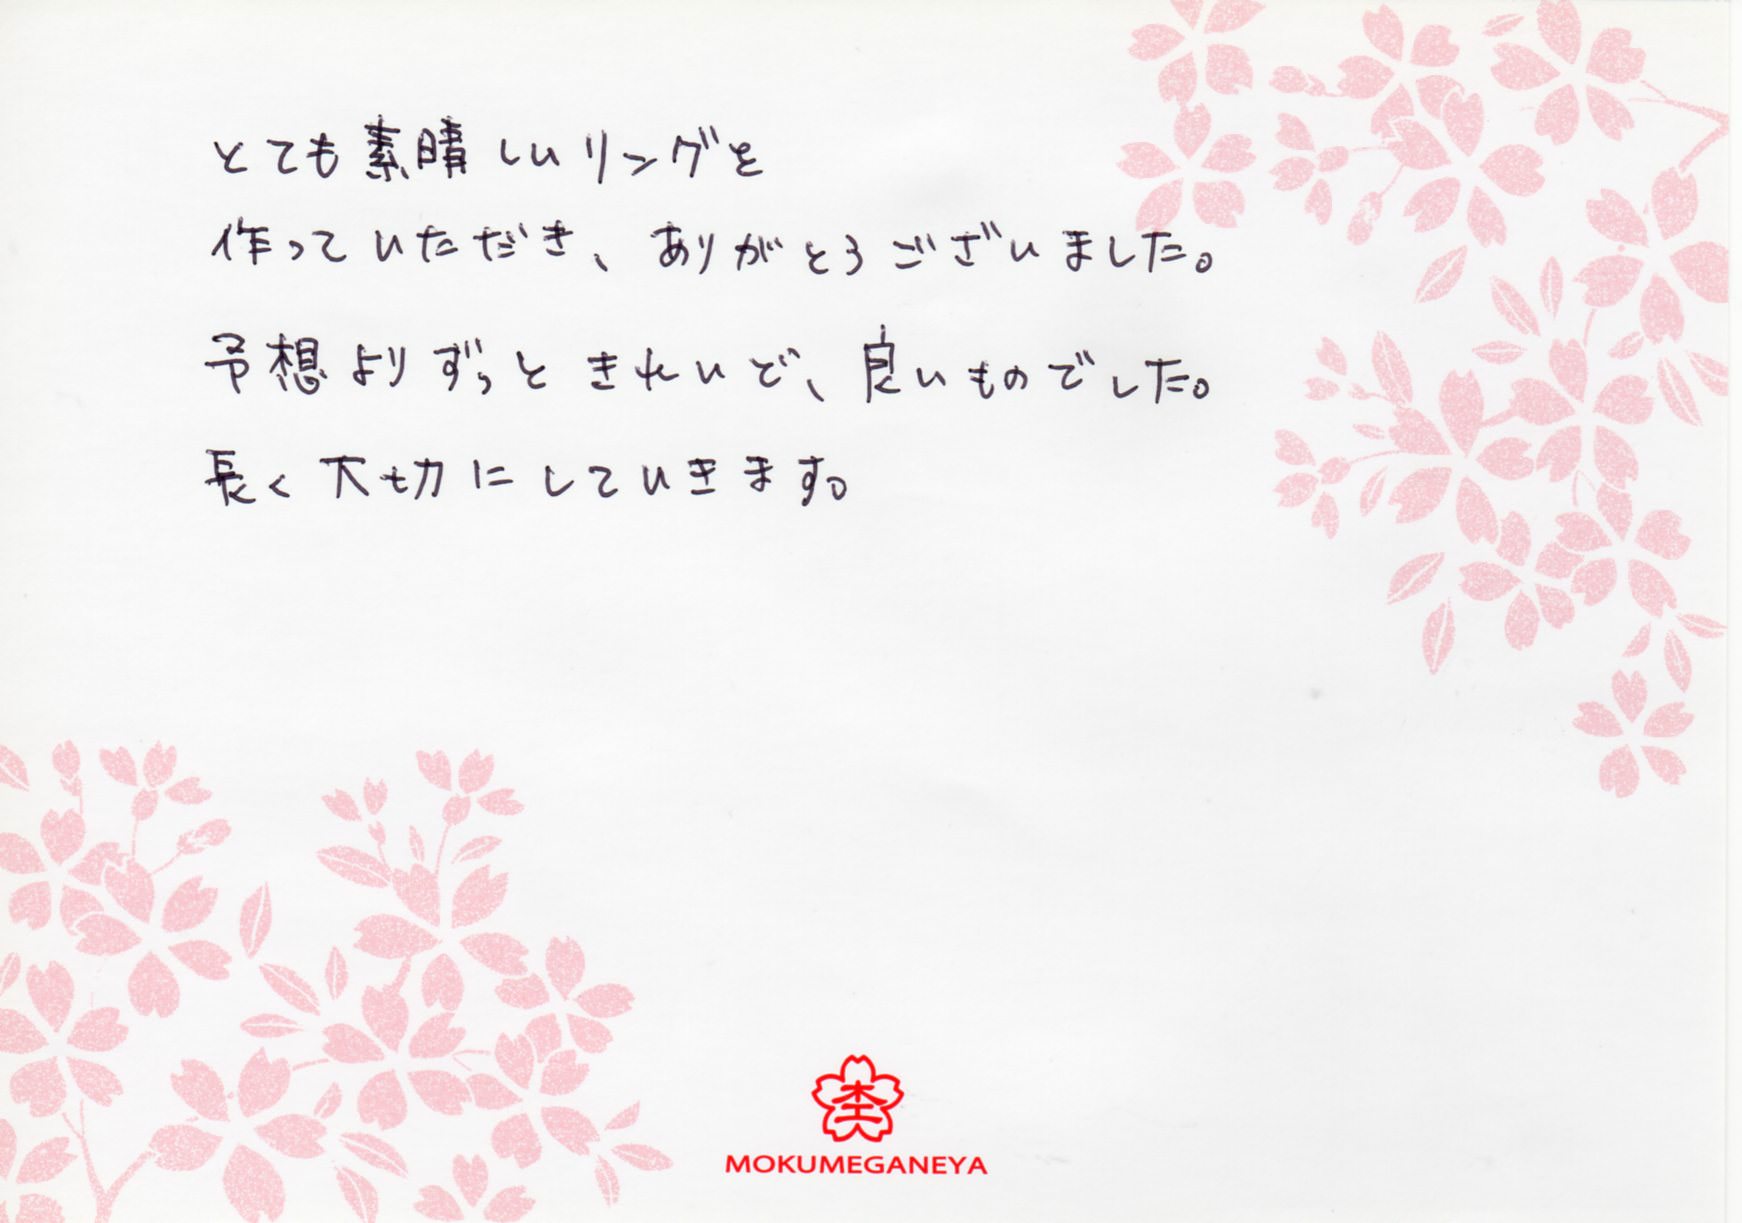 とても素晴しいリングを
作っていただき、ありがとうございました。
予想よりずっときれいで、良いものでした。
長く大切にしていきます。
MOKUMEGANEYA